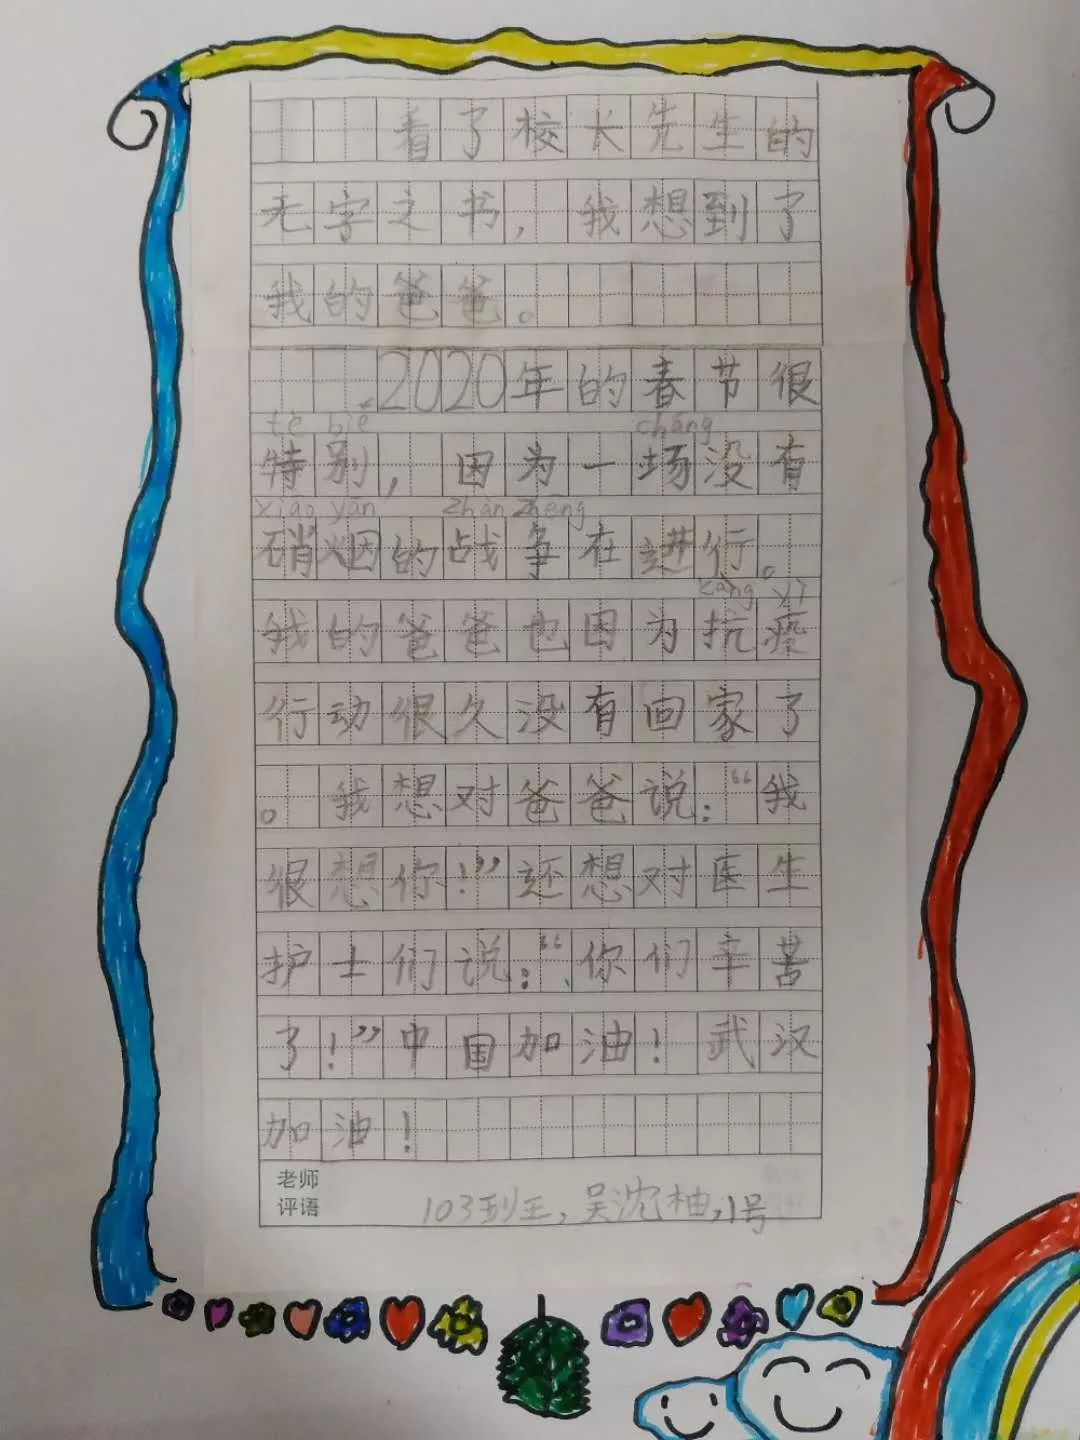 看了校长先生的
无字之书，我想到了
我的爸爸。
2020年的春节很
tè bié chǎng
特别，因为一场没有
xiāo yān zhàn zhēng
硝烟的战争在进行。
kàng yì
我的爸爸也因为抗疫
行动很久没有回家了
。我想对爸爸说：“我
很想你！”还想对医生
护士们说：“你们辛苦
了！”中国加油！武汉
加油！
老师
评语
103班，吴沈柚，1号